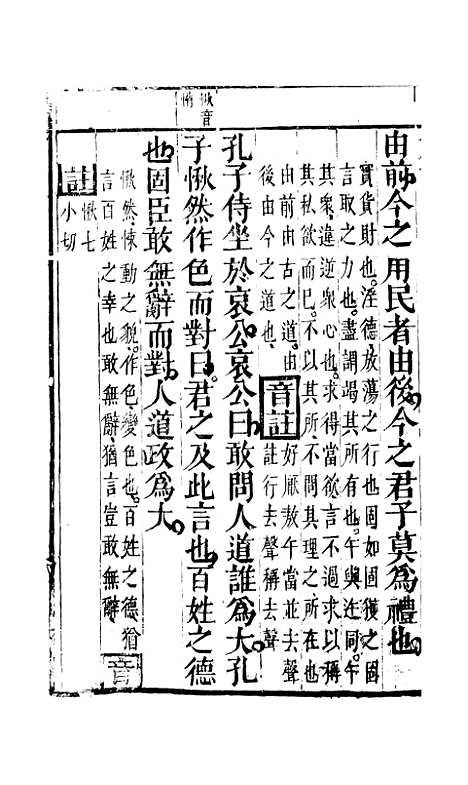 由前今之用民者由後今之君子莫為禮也
實貨財也淫德放蕩之行也固如固獲之固
言取之力也盡謂竭其所有也午與迕同午
其眾違逆眾心也求得當欲言不過求以稱
其私欲而已不以其所不問其理之所在也
由前由古之道由
後由今之道也
音註
好厭敖午當並去聲
註行去聲稱去聲
孔子侍坐於哀公哀公曰敢問人道誰為大孔
子愀然作色而對曰君之及此言也百姓之德
愀音
也固臣敢無辭而對人道政為大
愀然悚動之貌作色變色也百姓之德猶
言百姓之幸也敢無辭猶言豈敢無辭
音
註
愀七
小切